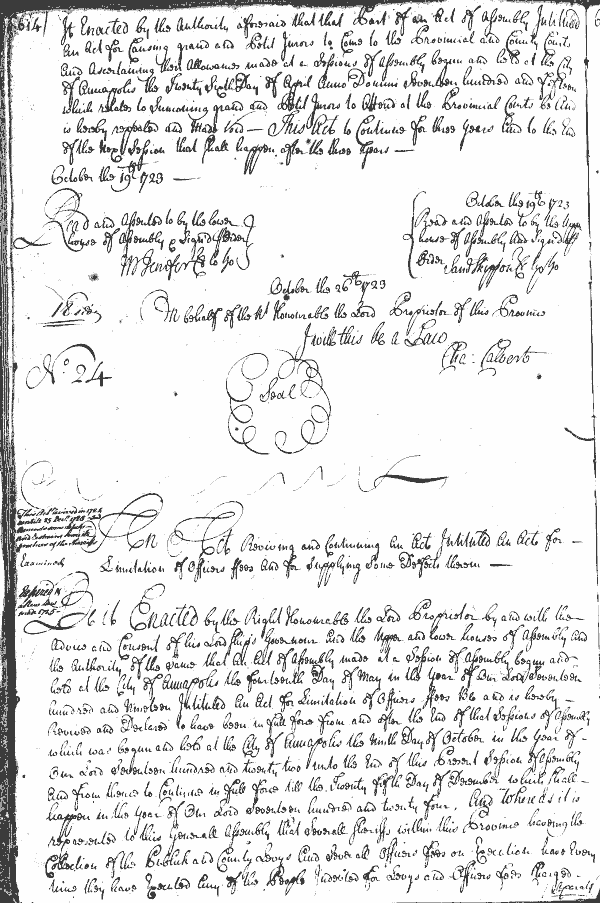 614
It Enacted by the Authority aforesaid that that Part of an Act of Assembly Intituled
An Act for Causing grand and Petit Jurors to Come to the Provincial and County Courts
And Ascertaining their Allowance made at a Sessions of Assembly begun and held at the City
of Annapolis the Twenty Sixth Day of April Anno Domini Seventeen hundred and fifteen
which relates to Sumoning grand and Petit Jurors to Attend at the Provincial Courts be and
is hereby repealed and Made Void — This Act to Continue for three Years and to the End
of the next Session that shall happen after the three Years —
October the 19th 1723 —
Read and Assented to by the Lower
house of Assembly Signd p Order
M Jenifer Cl lo ho
October the 19th 1723
Read and Assented to by the Upper
house of Assembly And Signd p
Order Sam Skippon Cl up ho
October the 26th 1723
On behalf of the Rt Honourable the Lord Proprietor of this Province
I will this be a Law
Cha: Calvert
No 24
Seal
This Act revived in 1724
untill 25 Decr. 1725 and
Examined
An Act Reviving and Continuing An Act Intituted An Act for —
Limitation of Officers ffees And for Supplying Some Defects therein —
Be it Enacted by the Right Honourable the Lord Proprietor by and with the
Advice and Consent of his Lordships Governour and the Upper and Lower houses of Assembly And
the Authority of the same that An Act of Assembly made at a Session of Assembly begun and
held at the City of Annapolis the fourteenth Day of May in the Year of Our Lord Seventeen
hundred and Nineteen Intituted An Act for Limitation of Officers ffees be and is hereby —
Revived and Declared to have been in full force from and after the End of that Sessions of Assembly
which was begun and held at the City of Annapolis the Ninth Day of October in the Year of —
Our Lord Seventeen hundred and twenty two unto the End of this Present Session of Assembly
And from thence to Continue in full force till the Twenty fifth Day of December which shall —
happen in the Year of Our Lord Seventeen hundred and twenty four. And Whereas it is
represented to this Generall Assembly that Severall Sheriffs within this Province having the
Collection of the Publick and County Levys And Severall Officers ffees on Execution have Every
time they have Executed Any of the People Indebted for Levys and Officers ffees Charged —